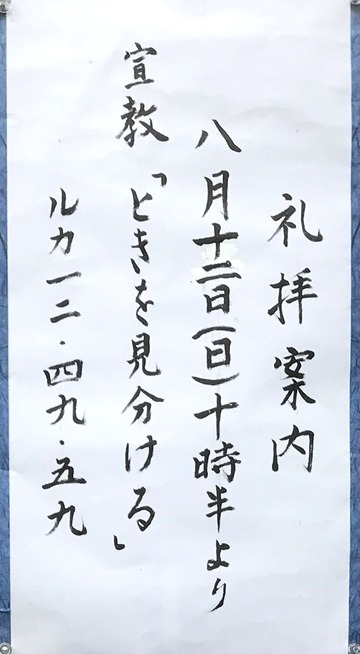 礼拝案内
八月十二日(日)十時半より
宣教「ときを見分ける」
ルカ一二・四九・五九